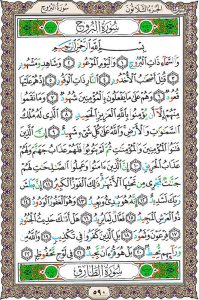 الجزء الثلاثون سورة البروج
سُورَةُ البُرُوجِ
بِسْمِ ٱللَّهِ ٱلرَّحْمَٰنِ ٱلرَّحِيمِ
وَٱلسَّمَآءِ ذَاتِ ٱلْبُرُوجِ ١ وَٱلْيَوْمِ ٱلْمَوْعُودِ ٢ وَشَاهِدٍ وَمَشْهُودٍ ٣
قُتِلَ أَصْحَٰبُ ٱلْأُخْدُودِ ٤ ٱلنَّارِ ذَاتِ ٱلْوَقُودِ ٥ إِذْ هُمْ عَلَيْهَا
قُعُودٌ ٦ وَهُمْ عَلَىٰ مَا يَفْعَلُونَ بِٱلْمُؤْمِنِينَ شُهُودٌ ٧ وَمَا نَقَمُوا۟
مِنْهُمْ إِلَّآ أَن يُؤْمِنُوا۟ بِٱللَّهِ ٱلْعَزِيزِ ٱلْحَمِيدِ ٨ ٱلَّذِى لَهُۥ مُلْكُ
ٱلسَّمَٰوَٰتِ وَٱلْأَرْضِ وَٱللَّهُ عَلَىٰ كُلِّ شَىْءٍ شَهِيدٌ ٩ إِنَّ ٱلَّذِينَ
فَتَنُوا۟ ٱلْمُؤْمِنِينَ وَٱلْمُؤْمِنَٰتِ ثُمَّ لَمْ يَتُوبُوا۟ فَلَهُمْ عَذَابُ جَهَنَّمَ وَلَهُمْ
عَذَابُ ٱلْحَرِيقِ ١٠ إِنَّ ٱلَّذِينَ ءَامَنُوا۟ وَعَمِلُوا۟ ٱلصَّٰلِحَٰتِ لَهُمْ
جَنَّٰتٌ تَجْرِى مِن تَحْتِهَا ٱلْأَنْهَٰرُ ذَٰلِكَ ٱلْفَوْزُ ٱلْكَبِيرُ ١١ إِنَّ بَطْشَ
رَبِّكَ لَشَدِيدٌ ١٢ إِنَّهُۥ هُوَ يُبْدِئُ وَيُعِيدُ ١٣ وَهُوَ ٱلْغَفُورُ ٱلْوَدُودُ ١٤
ذُو ٱلْعَرْشِ ٱلْمَجِيدُ ١٥ فَعَّالٌ لِّمَا يُرِيدُ ١٦ هَلْ أَتَىٰكَ حَدِيثُ ٱلْجُنُودِ ١٧
فِرْعَوْنَ وَثَمُودَ ١٨ بَلِ ٱلَّذِينَ كَفَرُوا۟ فِى تَكْذِيبٍ ١٩ وَٱللَّهُ مِن
وَرَآئِهِم مُّحِيطٌۢ ٢٠ بَلْ هُوَ قُرْءَانٌ مَّجِيدٌ ٢١ فِى لَوْحٍ مَّحْفُوظٍۭ ٢٢
سُورَةُ الطَّارِقِ
٥٩٠